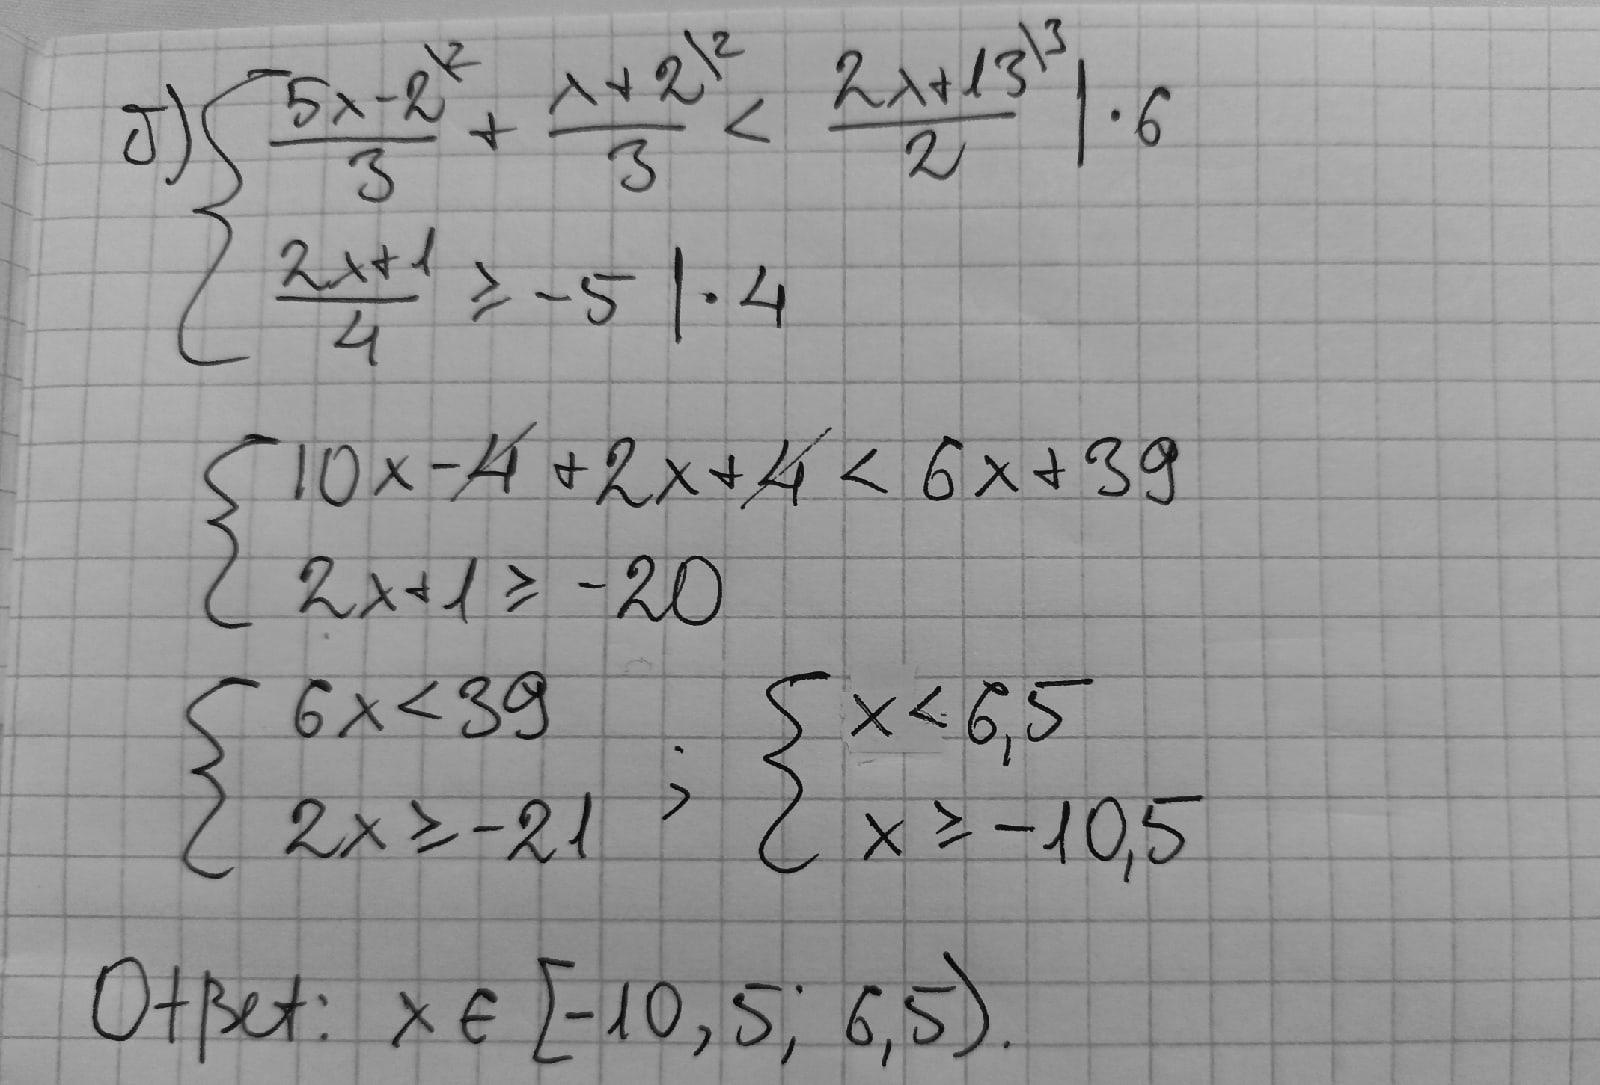 б) { (5x-2)/3 \2 + (x+2)/3 \2 < (2x+13)/2 \3 | · 6
(2x+1)/4 ≥ -5 | · 4
{ 10x - 4 + 2x + 4 < 6x + 39
2x + 1 ≥ -20
{ 6x < 39 ; { x < 6,5
2x ≥ -21 x ≥ -10,5
Ответ: x ∈ [-10,5; 6,5).